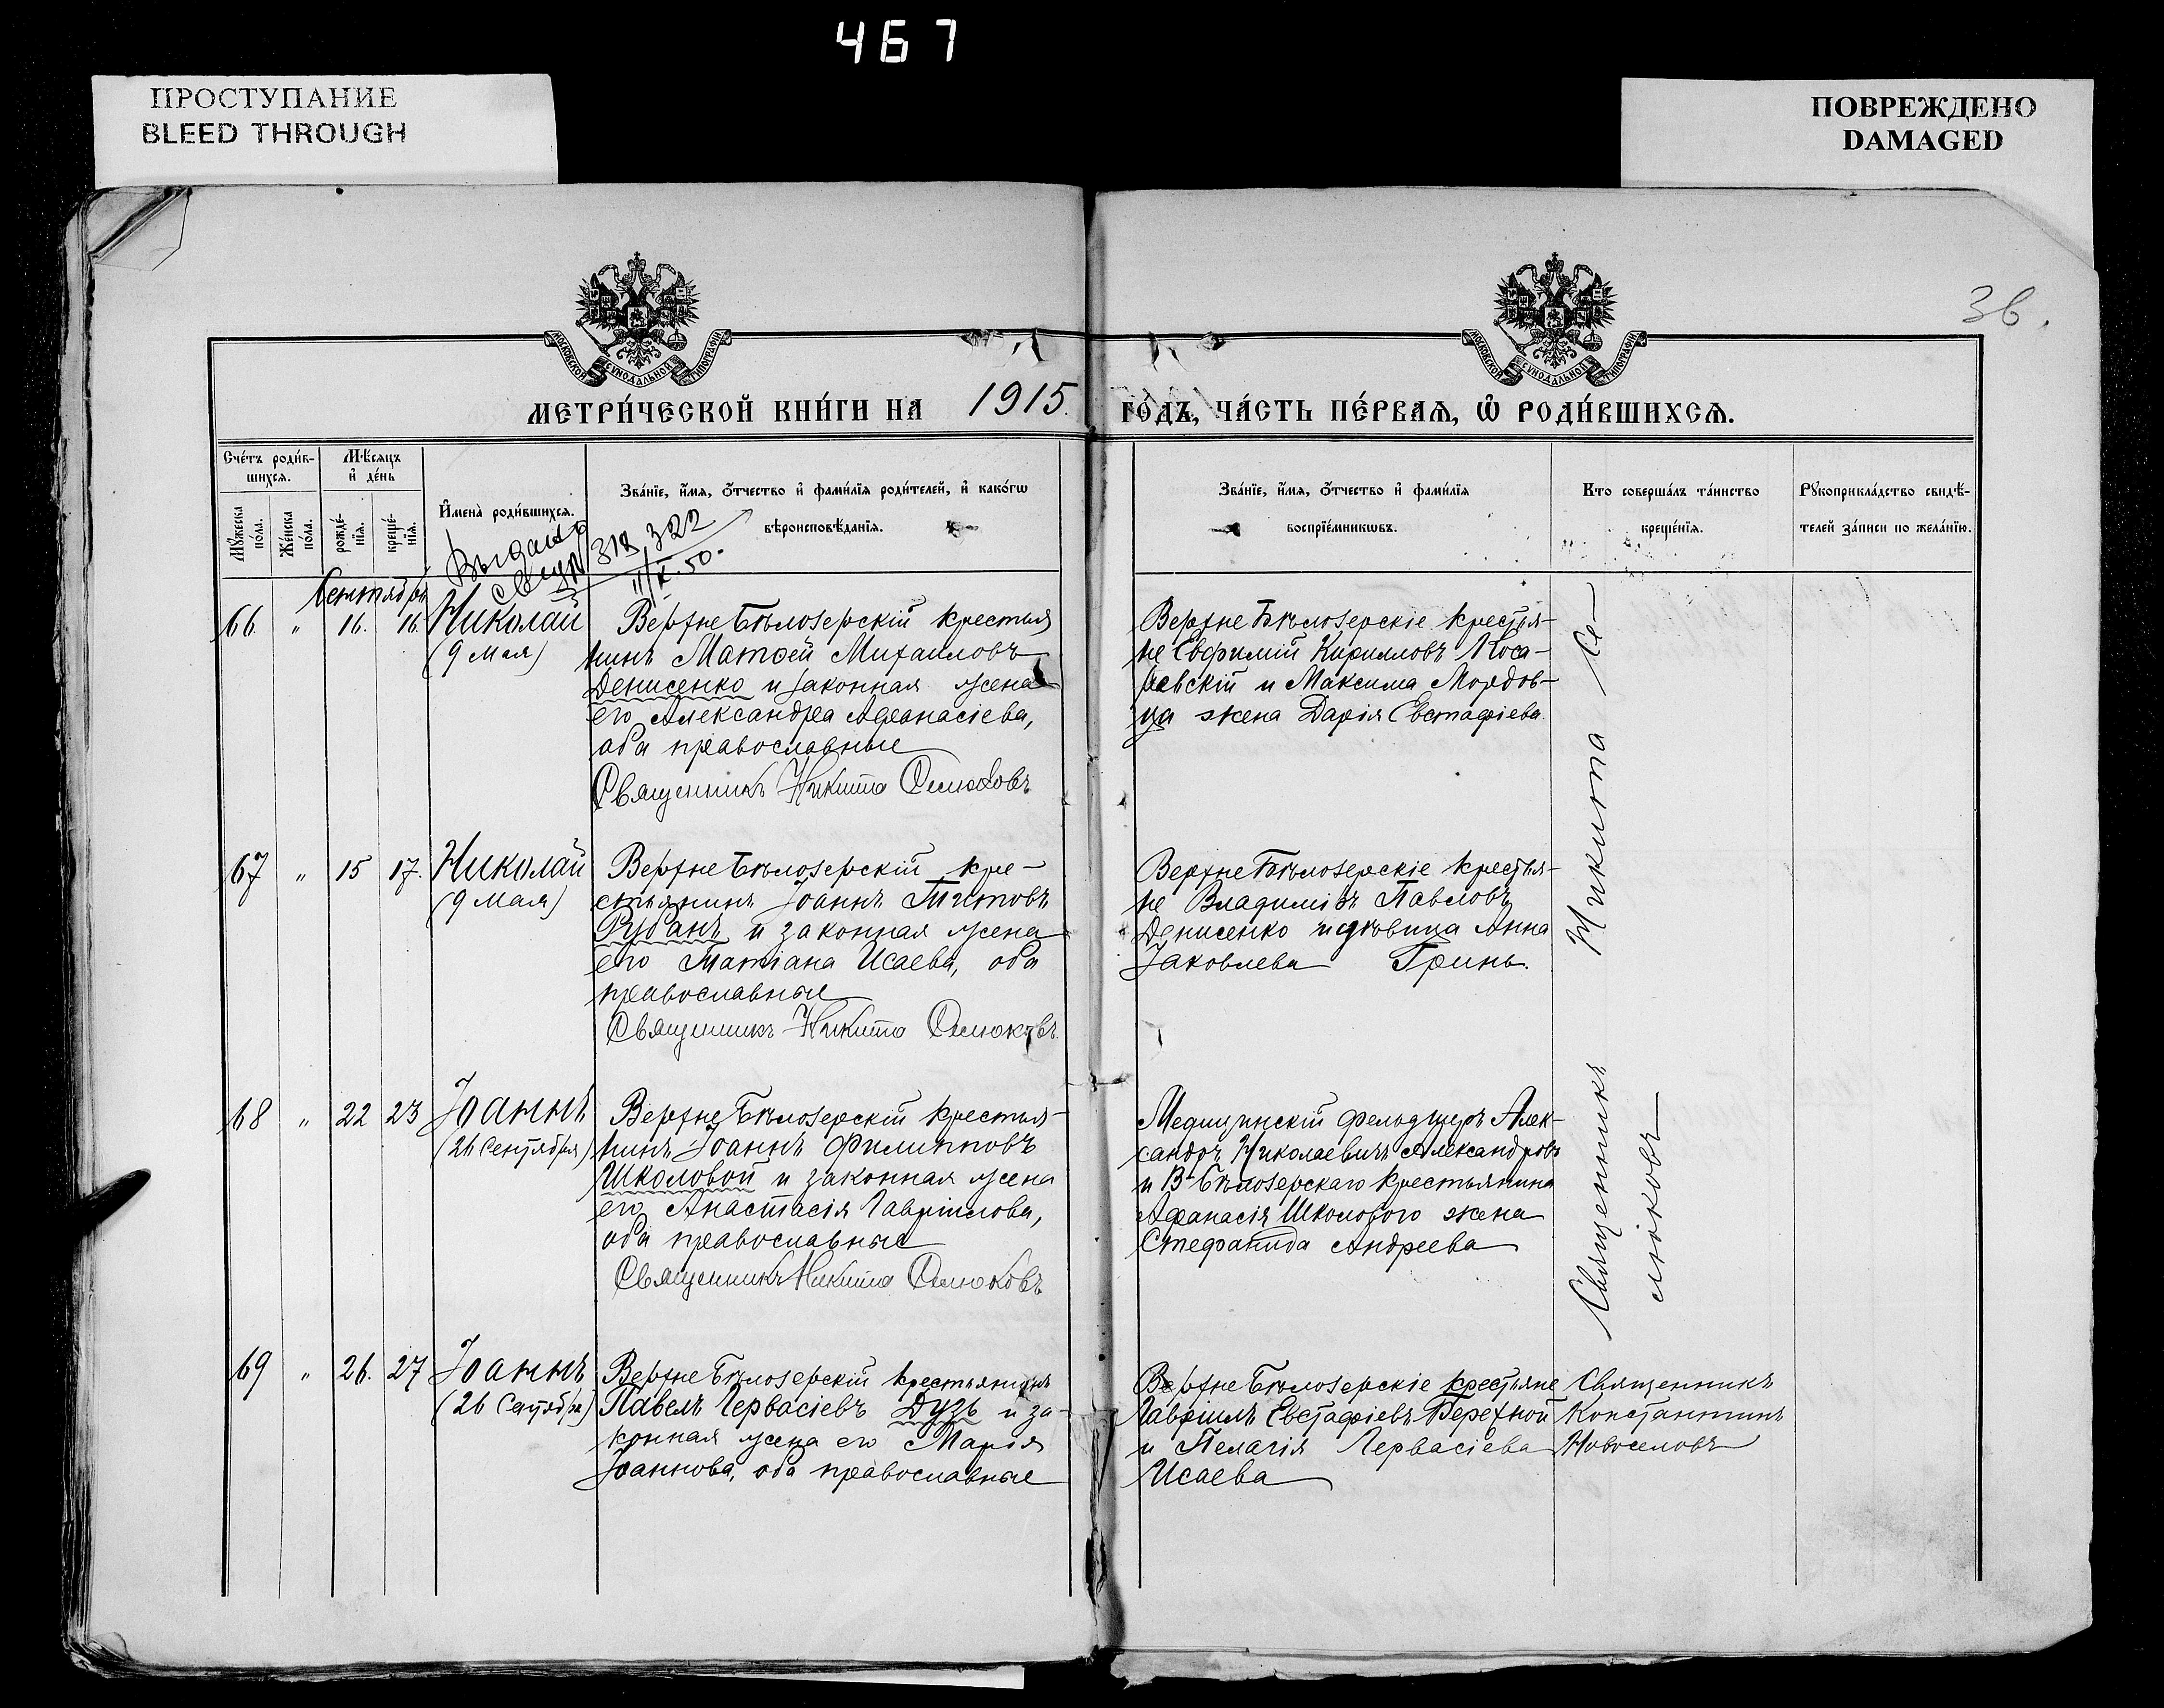 467
ПРОСТУПАНИЕ
BLEED THROUGH
ПОВРЕЖДЕНО
DAMAGED
36.
МОСКОВСКОЙ СѴНОДАЛЬНОЙ ТИПОГРАФІИ
МОСКОВСКОЙ СѴНОДАЛЬНОЙ ТИПОГРАФІИ
МЕТРИ́ЧЕСКОЙ КНИ́ГИ НА 1915 ГО́ДЪ, ЧА́СТЬ ПЕ́РВАѦ, Ѡ҆ РОДИ́ВШИХСѦ.
Сче́тъ роди́в-
шихсѧ.
Мꙋ́жеска по́ла.
Же́нска по́ла.
Мѣ́сѧцъ
и҆ де́нь
рожде́-
нїѧ.
креще́-
нїѧ.
И҆мена̀ роди́вшихсѧ.
Зва́нїе, и҆́мѧ, ѻ҆́тчество и҆ фами́лїѧ роди́телей, и҆ како́гѡ
вѣроисповѣ́данїѧ.
Зва́нїе, и҆́мѧ, ѻ҆́тчество и҆ фами́лїѧ
воспрїе́мникѡвъ.
Кто соверша́лъ та́инство
креще́нїѧ.
Рꙋкоприкла́дство свидѣ́-
телей за́писи по жела́нїю.
Выдано
322
Сентябрь
66. " 16. 16. Николай
(9 мая)
Верхне Бѣлозерскій крестья
нинъ Матѳей Михаиловъ
Денисенко и законная жена
его Александра Аѳанасіева,
оба православные
Священникъ Никита Селюковъ
Верхне Бѣлозерскіе крестья-
не Евфимій Кирилловъ Коса-
ревскій и Максима Мордов-
ца жена Дарія Евстафіева.
Священникъ Никита Се-
люковъ
67 " 15 17. Николай
(9 мая)
Верхне Бѣлозерскій кре-
стьянинъ Іоаннъ Титовъ
Рубанъ и законная жена
его Татіана Исаева, оба
православные
Священникъ Никита Селюковъ.
Верхне Бѣлозерскіе крестья-
не Владиміръ Павловъ
Денисенко и дѣвица Анна
Іаковлева Гринь.
68 " 22 23 Іоаннъ
(26 Сентября)
Верхне Бѣлозерскій крестья-
нинъ Іоаннъ Филипповъ
Школовой и законная жена
его Анастасія Гавріилова,
оба православные
Священникъ Никита Селюковъ
Медицинскій фельдшеръ Алек-
сандръ Николаевичъ Александровъ
и В-Бѣлозерскаго крестьянина
Афанасія Школового жена
Стефанида Андреева
69 " 26. 27 Іоаннъ
(26 Сентября)
Верхне Бѣлозерскій крестьянинъ
Павелъ Гервасіевъ Дузь и за-
конная жена его Марія
Іоаннова, оба православные
Верхне Бѣлозерскіе крестьяне
Гавріилъ Евстафіевъ Бережной
и Пелагія Гервасіева
Исаева
Священникъ
Константинъ
Новоселовъ